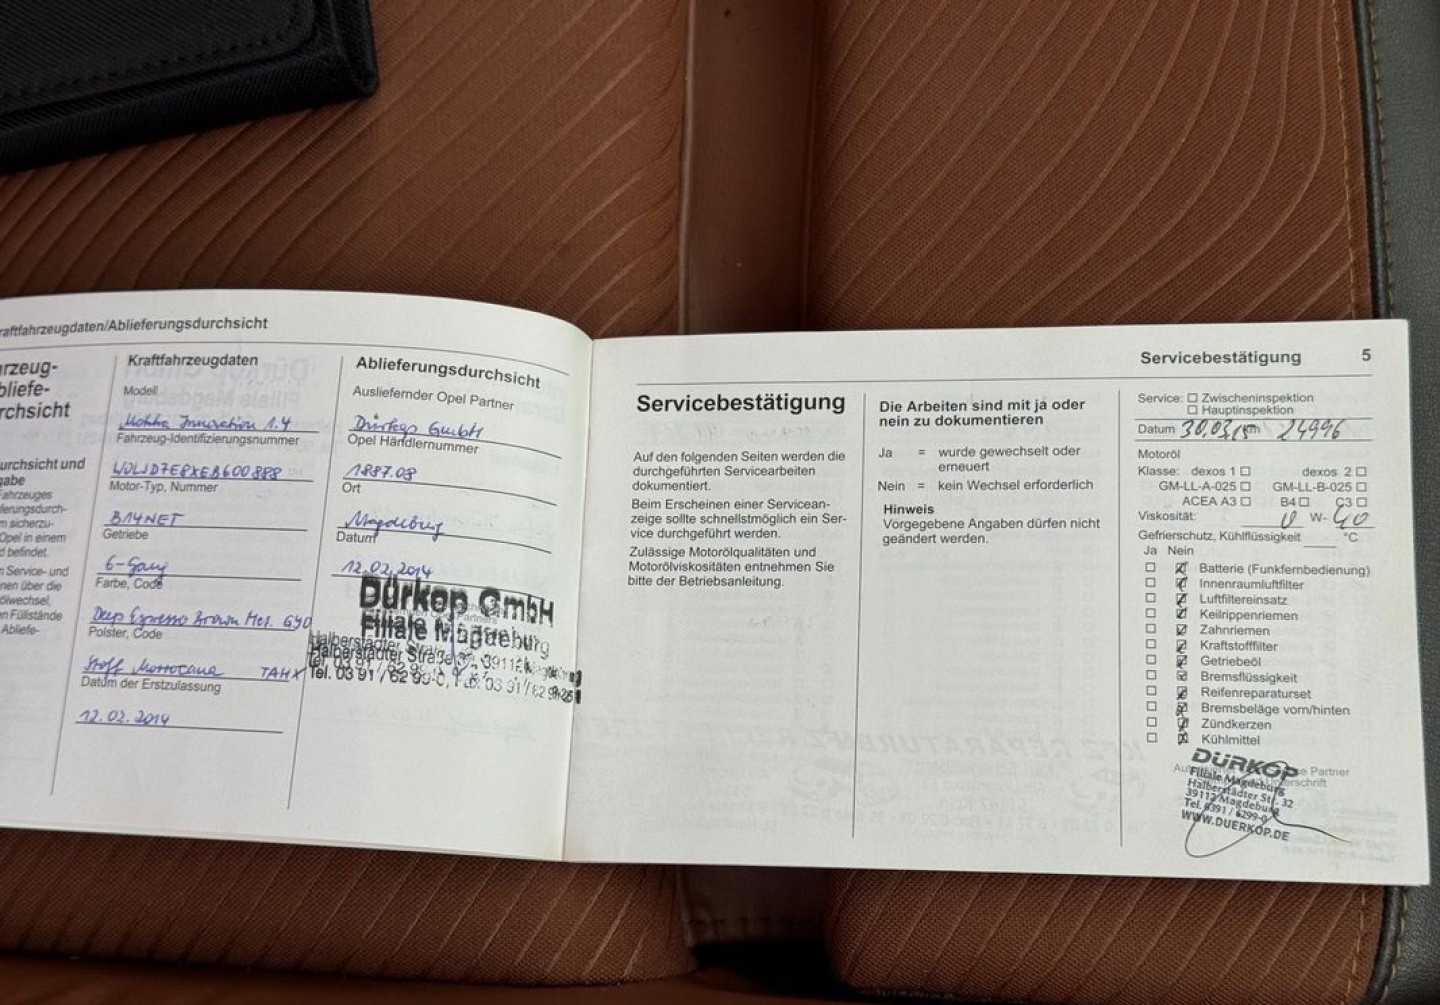 raftfahrzeugdaten/Ablieferungsdurchsicht
rzeug-
bliefe-
rchsicht
urchsicht und
gabe
Fahrzeuges
ferungsdurch-
m sicherzu-
Opel in einem
d befindet.
n Service- und
nen über die
ölwechsel,
n Füllstände
Abliefe-
Kraftfahrzeugdaten
Modell
Mokka Innovation 1.4
Fahrzeug-Identifizierungsnummer
W0LJD7E8XEB600888
Motor-Typ, Nummer
B14NET
Getriebe
6-Gang
Farbe, Code
Deep Espresso Brown Met. GYO
Polster, Code
Stoff Morrocana TAHX
Datum der Erstzulassung
12.02.2014
Ablieferungsdurchsicht
Ausliefernder Opel Partner
Dürkop GmbH
Opel Händlernummer
1887.08
Ort
Magdeburg
Datum
12.02.2014
Dürkop GmbH
Filiale Magdeburg
Halberstädter Straße 32, 39112
Tel. 03 91 / 62 99-0,
Servicebestätigung 5
Servicebestätigung
Auf den folgenden Seiten werden die
durchgeführten Servicearbeiten
dokumentiert.
Beim Erscheinen einer Servicean-
zeige sollte schnellstmöglich ein Ser-
vice durchgeführt werden.
Zulässige Motorölqualitäten und
Motorölviskositäten entnehmen Sie
bitte der Betriebsanleitung.
Die Arbeiten sind mit ja oder
nein zu dokumentieren
Ja = wurde gewechselt oder
erneuert
Nein = kein Wechsel erforderlich
Hinweis
Vorgegebene Angaben dürfen nicht
geändert werden.
Service: Zwischeninspektion
Hauptinspektion
Datum 30.03.15 km 24996
Motoröl
Klasse: dexos 1 dexos 2
GM-LL-A-025 GM-LL-B-025
ACEA A3 B4 C3
Viskosität: 0 W- 40
Gefrierschutz, Kühlflüssigkeit °C
Ja Nein
Batterie (Funkfernbedienung)
Innenraumluftfilter
Luftfiltereinsatz
Keilrippenriemen
Zahnriemen
Kraftstofffilter
Getriebeöl
Bremsflüssigkeit
Reifenreparaturset
Bremsbeläge vorn/hinten
Zündkerzen
Kühlmittel
DÜRKOP
Filiale Magdeburg
Halberstädter Str. 32
39112 Magdeburg
Tel. 0391 / 6299-0
WWW.DUERKOP.DE
Partner